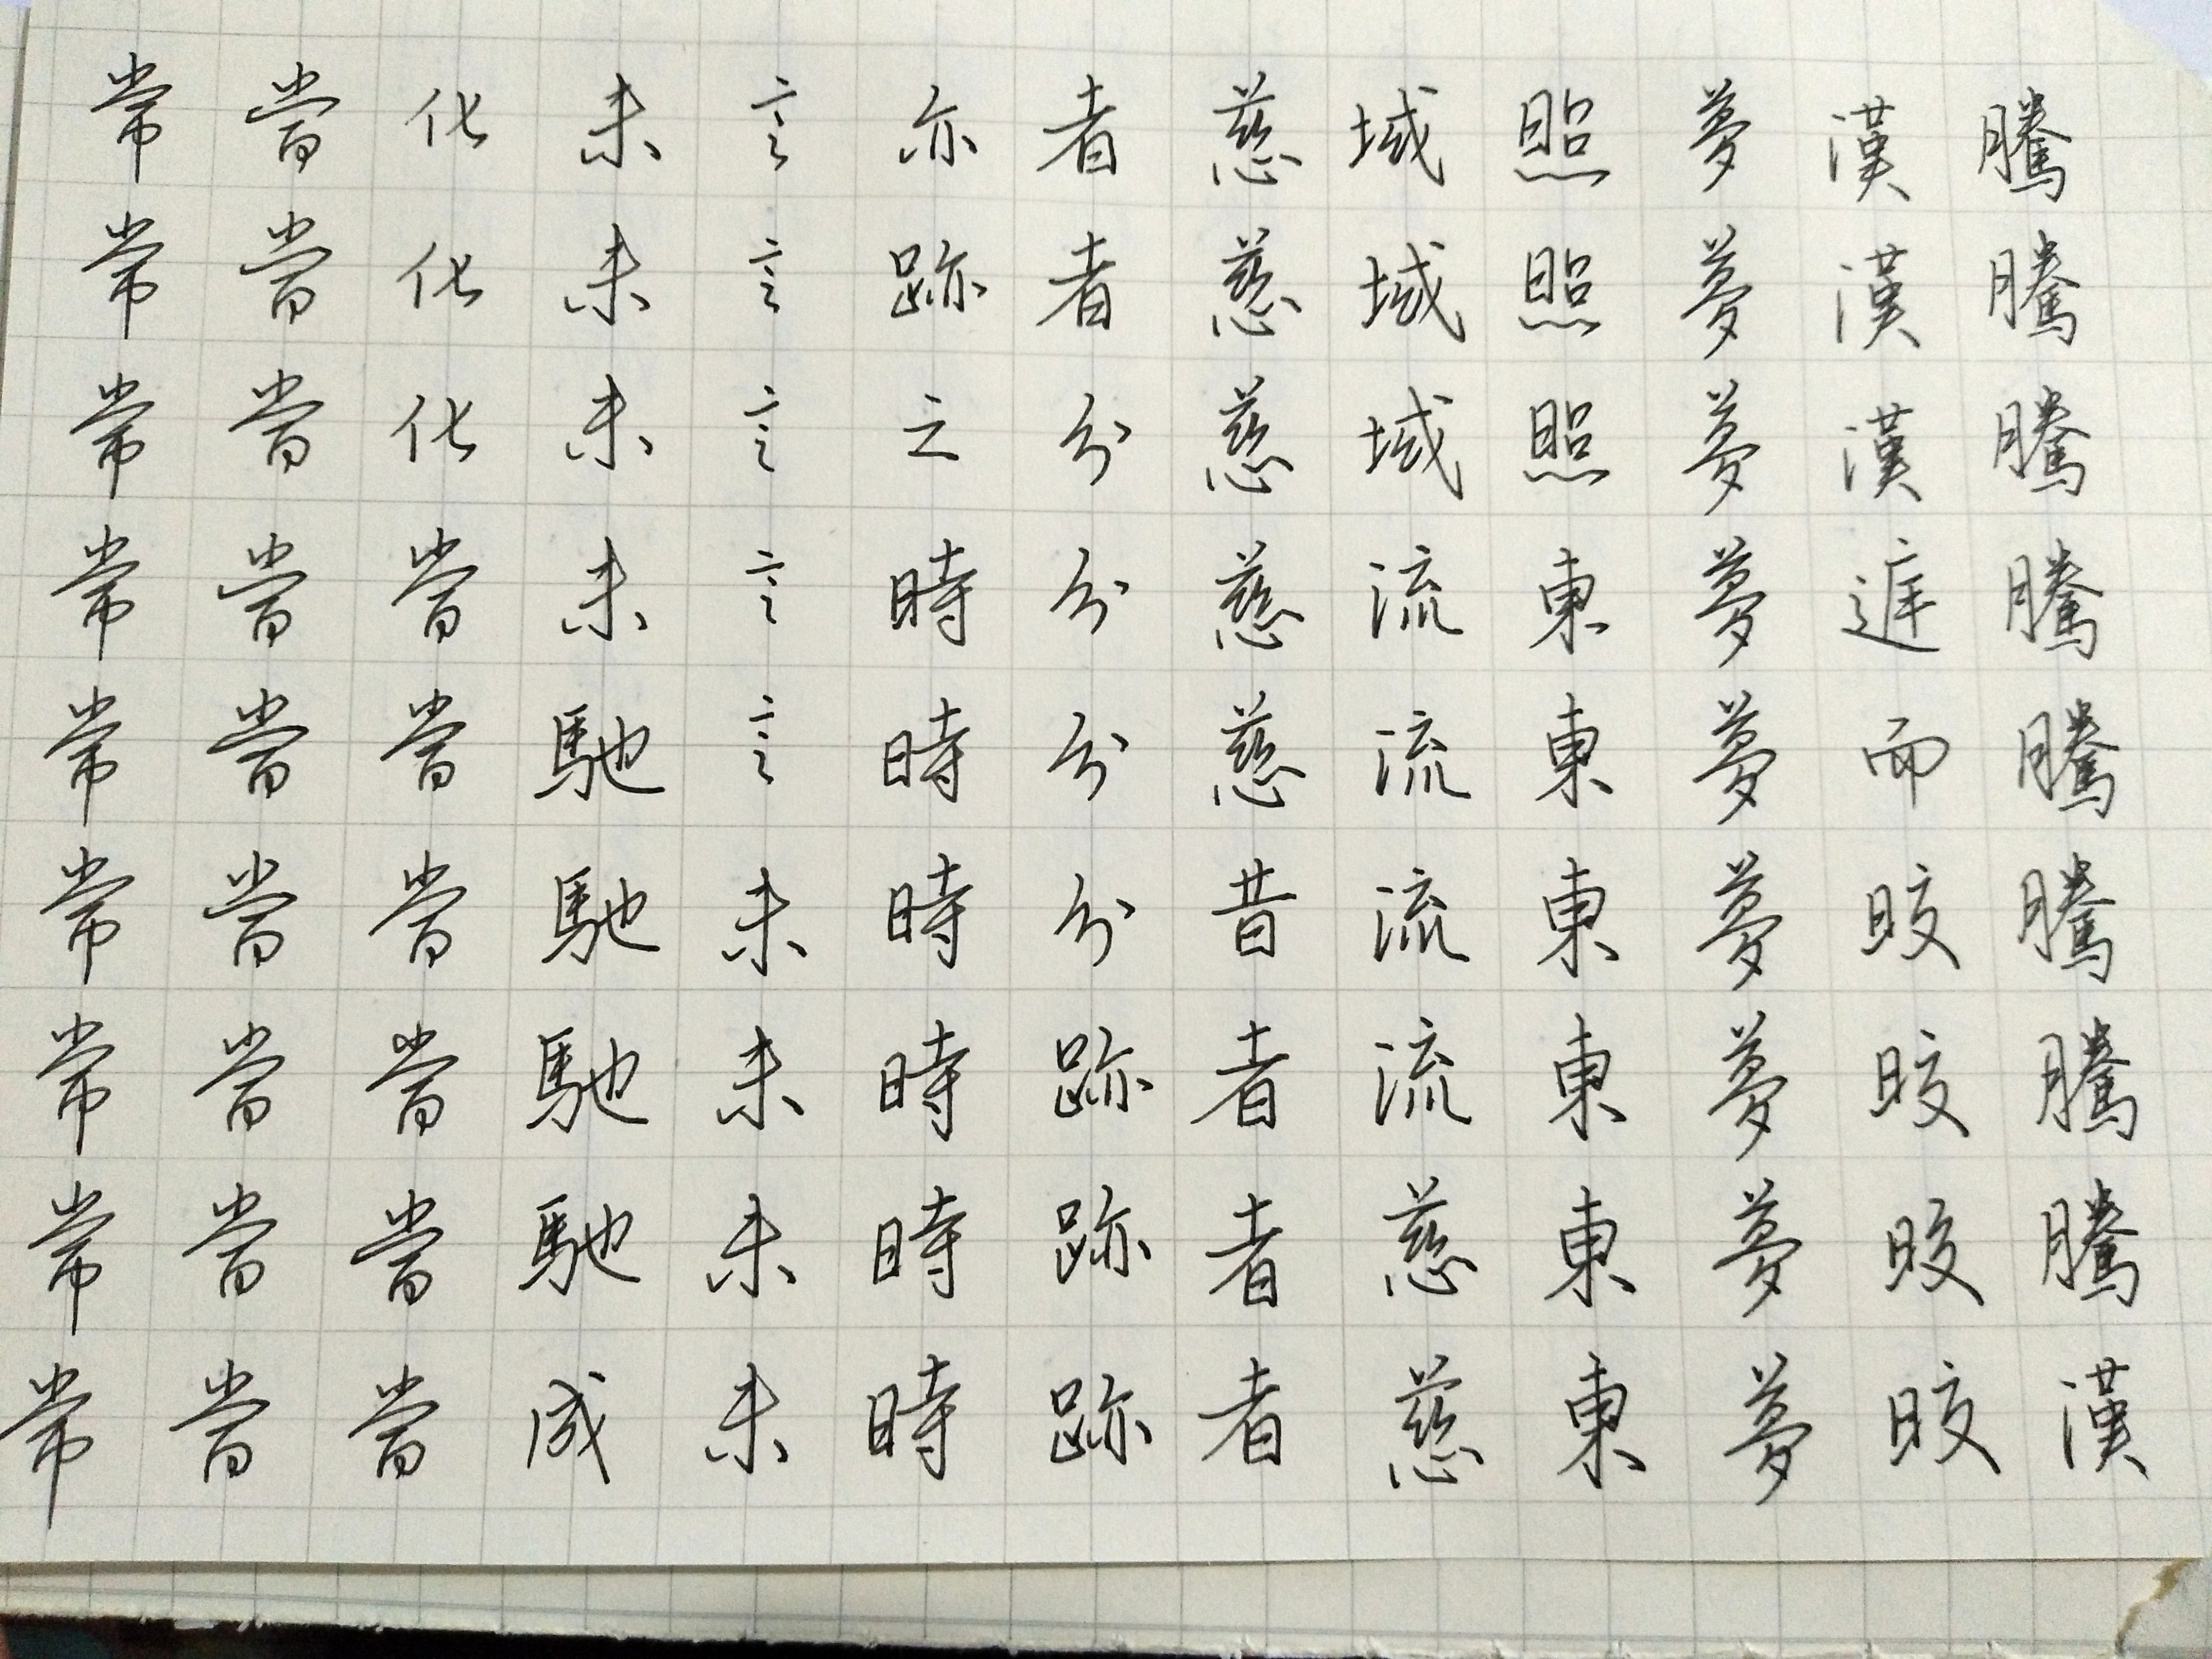 騰騰騰騰騰騰騰騰漢
漢漢漢庭而皎皎皎皎
夢夢夢夢夢夢夢夢夢
照照照東東東東東東
域域域流流流流慈慈
慈慈慈慈慈昔者者者
者者分分分分跡跡跡
亦跡之時時時時時時
言言言言言未未未未
未未未未馳馳馳馳成
化化化當當當當當當
當當當當當當當當當
常常常常常常常常常